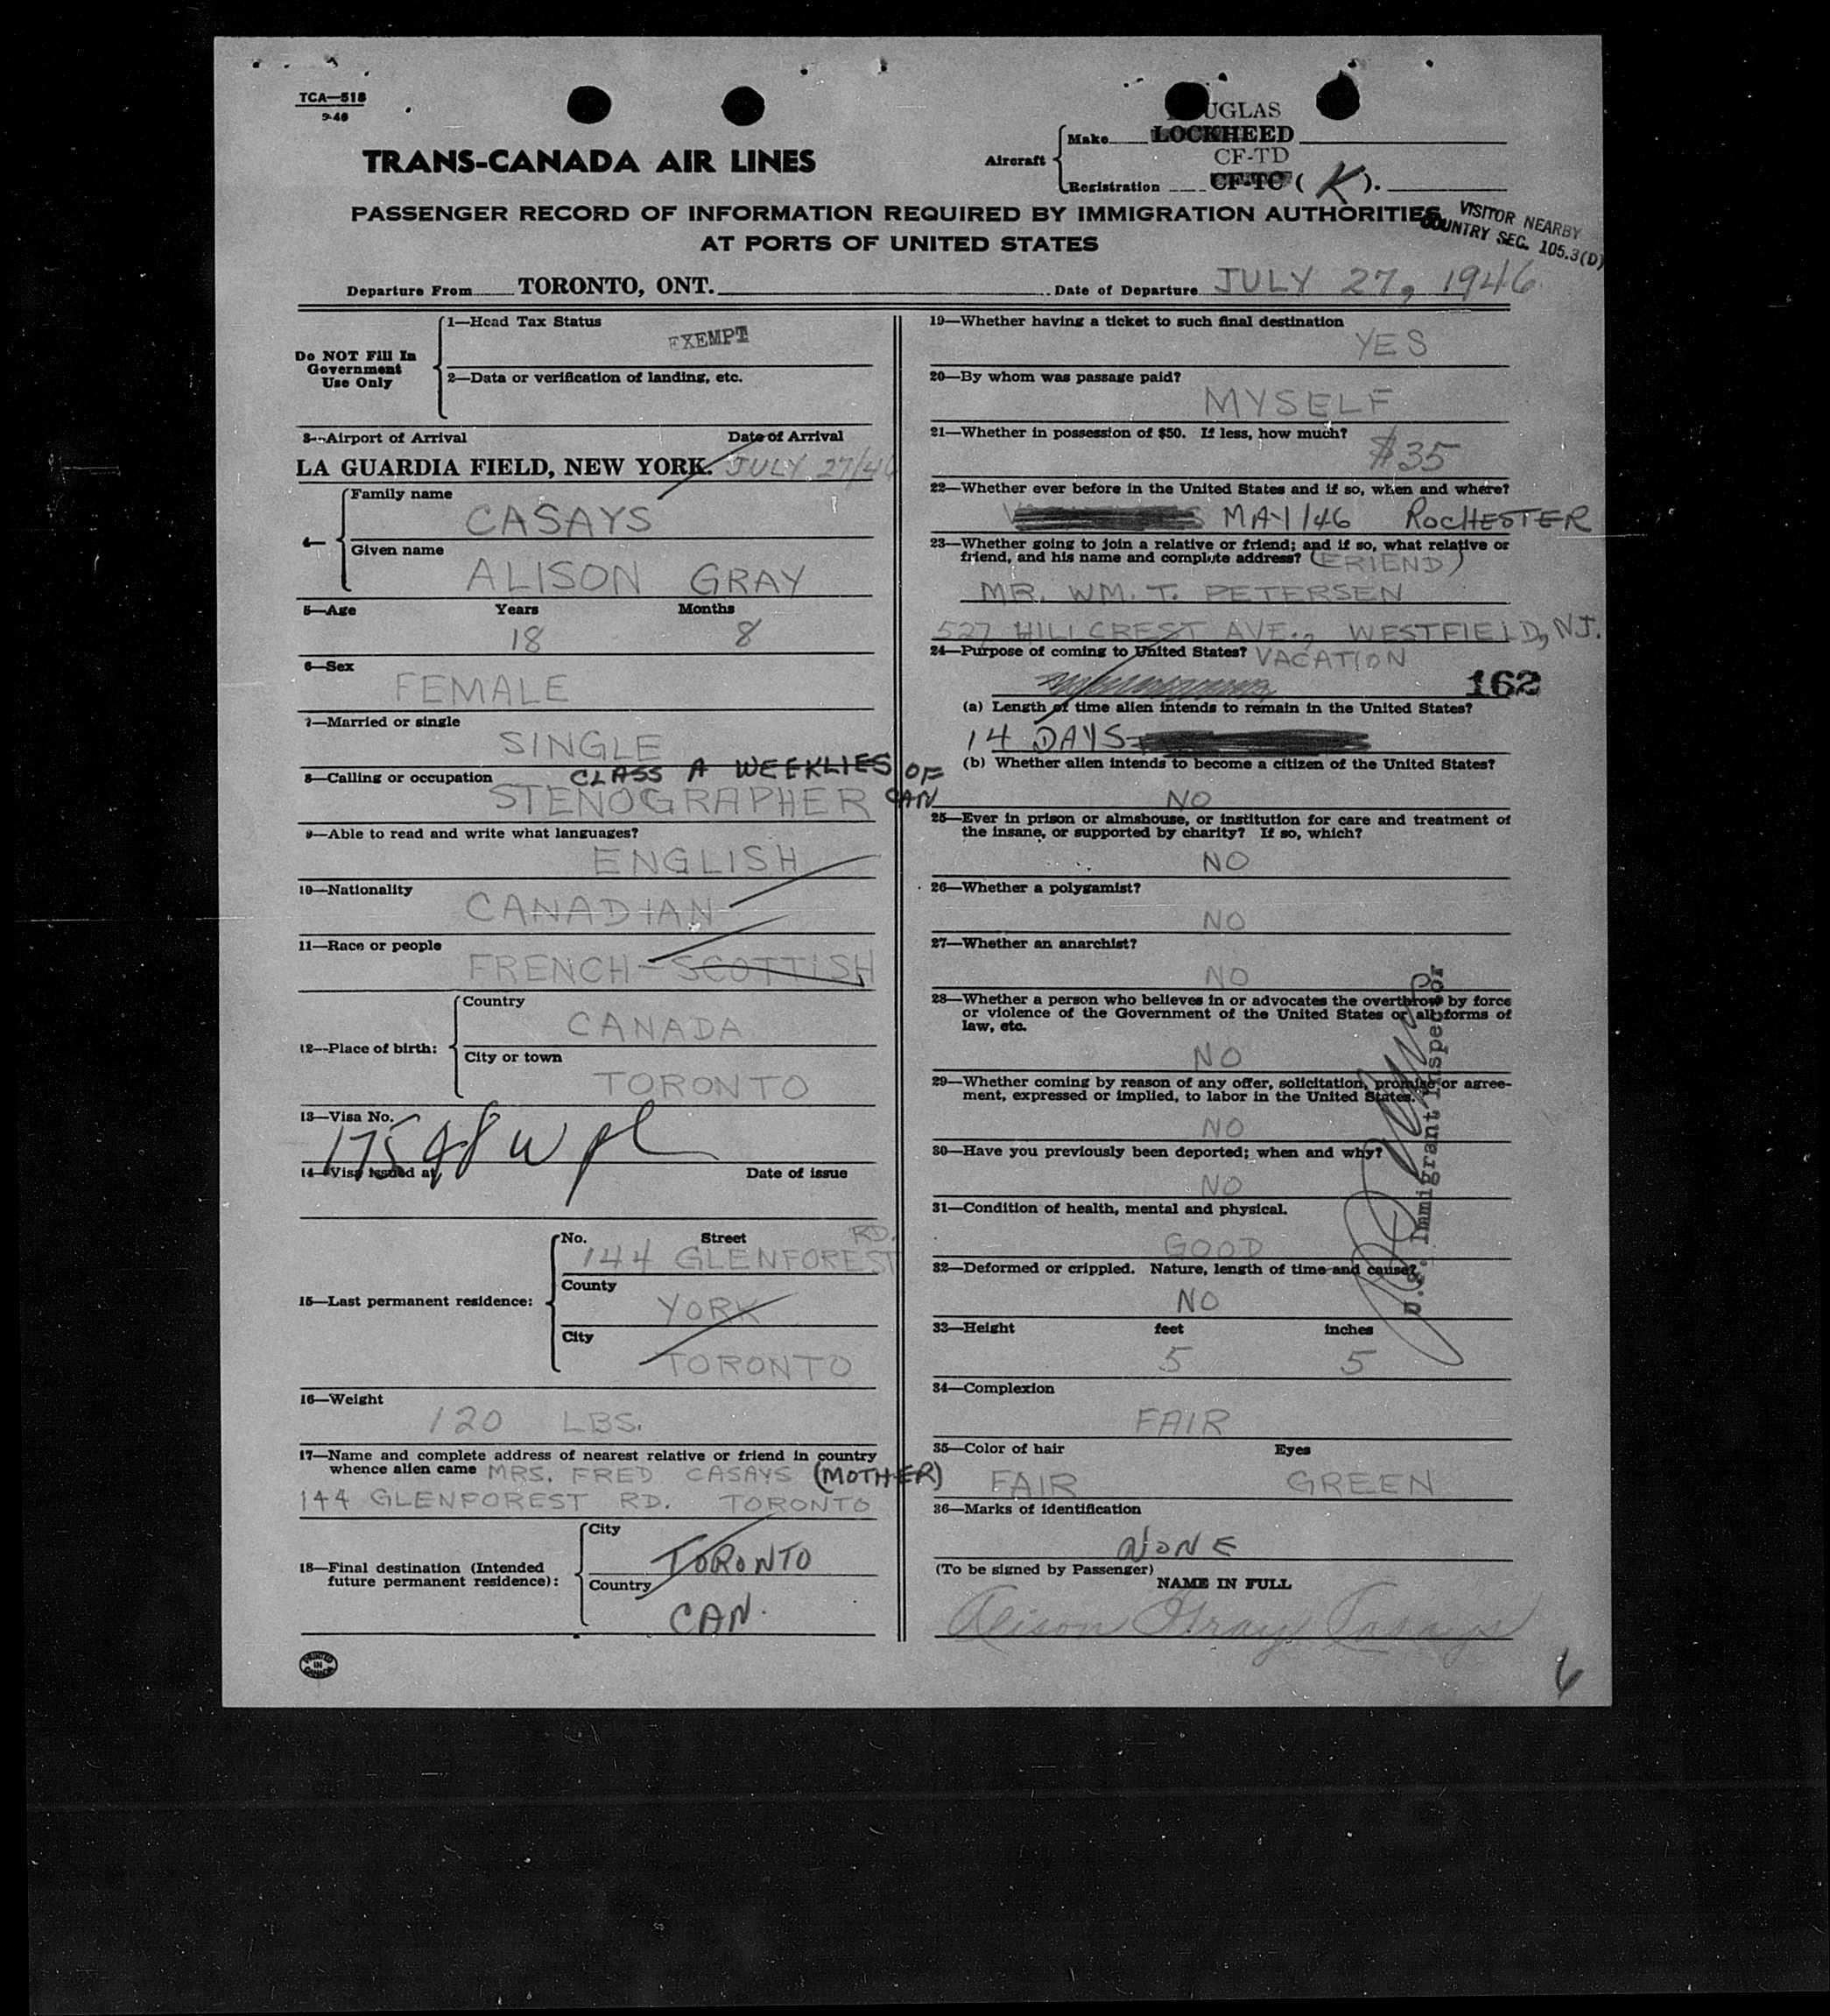 TCA—518
9-46
UGLAS
Aircraft
Make LOCKHEED
CF-TD
Registration CF-TC ( K ).
TRANS-CANADA AIR LINES
PASSENGER RECORD OF INFORMATION REQUIRED BY IMMIGRATION AUTHORITIES
AT PORTS OF UNITED STATES
VISITOR NEARBY
COUNTRY SEC. 105.3(D)
Departure From TORONTO, ONT. Date of Departure JULY 27, 1946
Do NOT Fill In
Government
Use Only
1—Head Tax Status
EXEMPT
2—Data or verification of landing, etc.
3—Airport of Arrival Date of Arrival
LA GUARDIA FIELD, NEW YORK. JULY 27/46
4—
Family name
CASAYS
Given name
ALISON GRAY
5—Age Years Months
18 8
6—Sex
FEMALE
7—Married or single
SINGLE
8—Calling or occupation CLASS A WEEKLIES OF
STENOGRAPHER CAN
9—Able to read and write what languages?
ENGLISH
10—Nationality
CANADIAN
11—Race or people
FRENCH - SCOTTISH
12—Place of birth:
Country
CANADA
City or town
TORONTO
13—Visa No.
14—Visa issued at Date of issue
15—Last permanent residence:
No. Street RD.
144 GLENFOREST
County
YORK
City
TORONTO
16—Weight
120 LBS.
17—Name and complete address of nearest relative or friend in country
whence alien came MRS. FRED CASAYS (MOTHER)
144 GLENFOREST RD. TORONTO
18—Final destination (Intended
future permanent residence):
City
TORONTO
Country
CAN.
PRINTED
IN
CANADA
19—Whether having a ticket to such final destination
YES
20—By whom was passage paid?
MYSELF
21—Whether in possession of $50. If less, how much?
$35
22—Whether ever before in the United States and if so, when and where?
MAY/46 ROCHESTER
23—Whether going to join a relative or friend; and if so, what relative or
friend, and his name and complete address? (FRIEND)
MR. WM. T. PETERSEN
527 HILLCREST AVE., WESTFIELD, N.J.
24—Purpose of coming to United States? VACATION
162
(a) Length of time alien intends to remain in the United States?
14 DAYS
(b) Whether alien intends to become a citizen of the United States?
NO
25—Ever in prison or almshouse, or institution for care and treatment of
the insane, or supported by charity? If so, which?
NO
26—Whether a polygamist?
NO
27—Whether an anarchist?
NO
28—Whether a person who believes in or advocates the overthrow by force
or violence of the Government of the United States or all forms of
law, etc.
NO
29—Whether coming by reason of any offer, solicitation, promise or agree-
ment, expressed or implied, to labor in the United States.
NO
30—Have you previously been deported; when and why?
NO
31—Condition of health, mental and physical.
GOOD
32—Deformed or crippled. Nature, length of time and cause?
NO
U.S. Immigrant Inspector
33—Height feet inches
5 5
34—Complexion
FAIR
35—Color of hair Eyes
FAIR GREEN
36—Marks of identification
NONE
(To be signed by Passenger)
NAME IN FULL
Alison Gray Casays
6